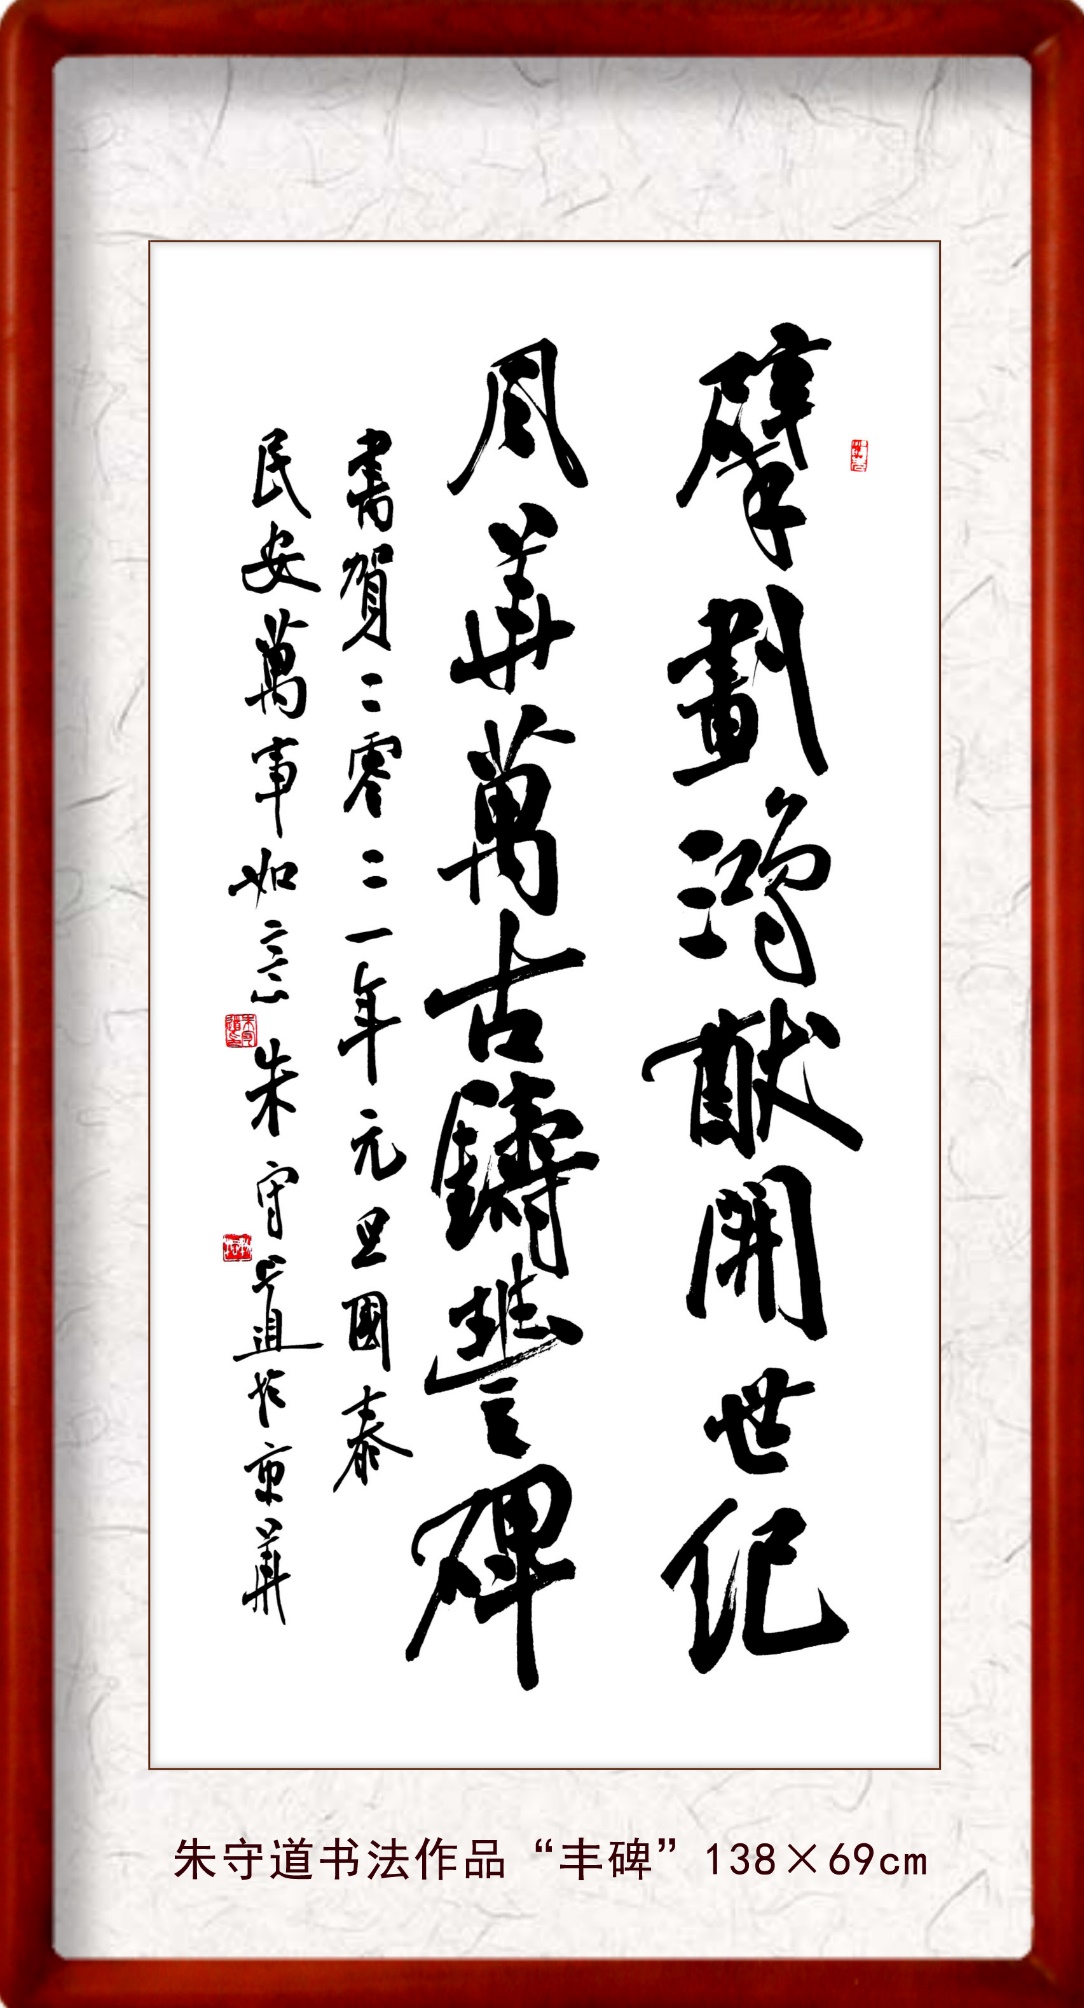 擘劃鴻猷開世紀
風華萬古鑄豐碑
書賀二零二一年元旦國泰
民安萬事如意朱守道於京華
朱守道书法作品“丰碑”138×69cm